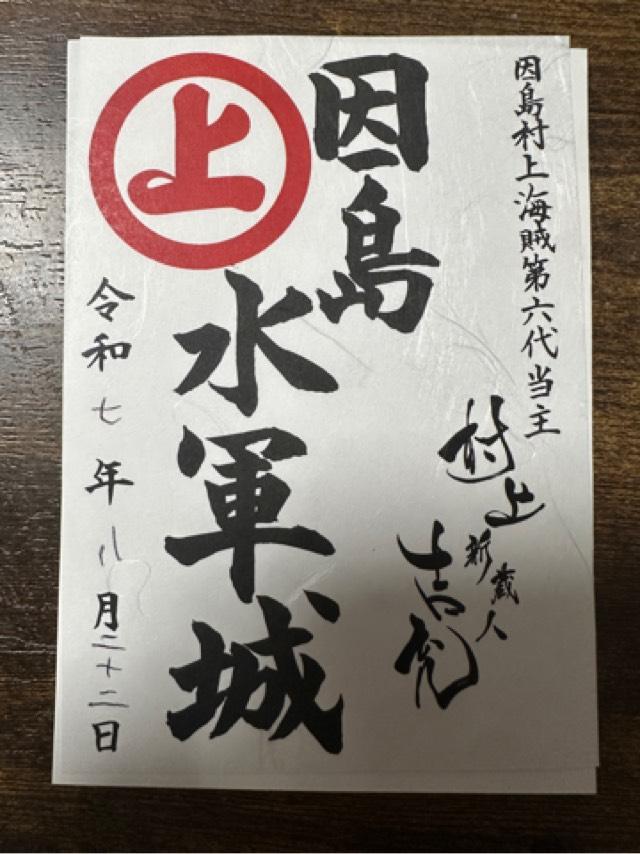 因島村上海賊第六代当主
村上新蔵人吉充
因島
水軍城
上
令和七年八月二十二日